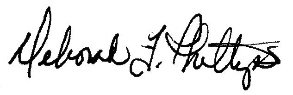 Deborah L. Phillips